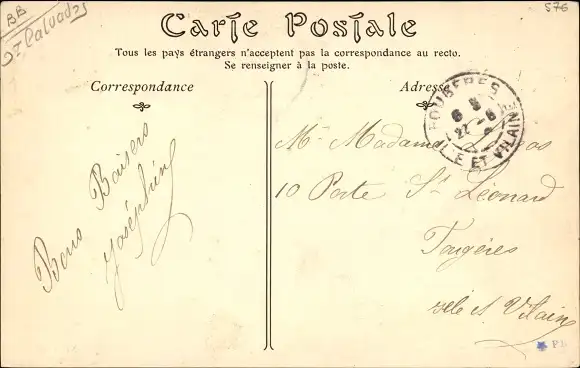 BB
Calvados
576
Carte Postale
Tous les pays étrangers n'acceptent pas la correspondance au recto.
Se renseigner à la poste.
Correspondance
Adresse
Bons Baisers
Joséphine
FOUGERES
ET VILAINE
Mr Madame
10 Porte St Léonard
Fougères
Ille et Vilaine